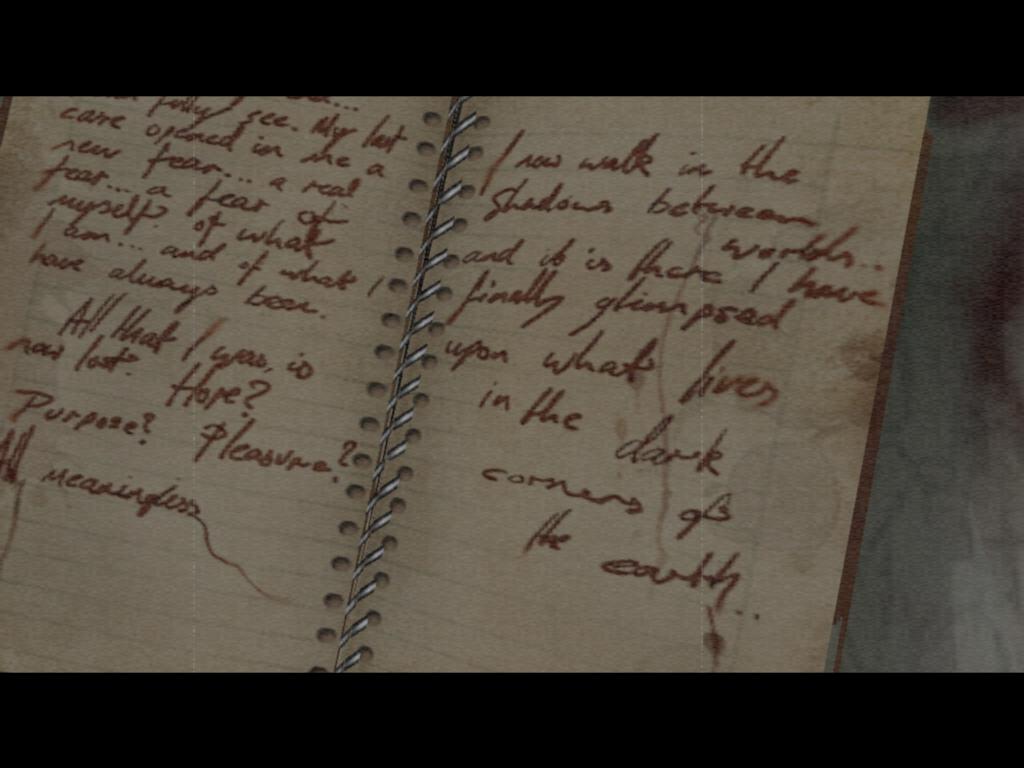 fully see. My last
case opened in me a
new fear... a real
fear... a fear of
myself. of what
I am... and of what I
have always been.
All that I was, is
now lost.
Hope?
Purpose? Pleasure?
All meaningless
I now walk in the
Shadows between
worlds...
and it is there I have
finally glimpsed
upon what lives
in the
dark
corners of
the
earth...